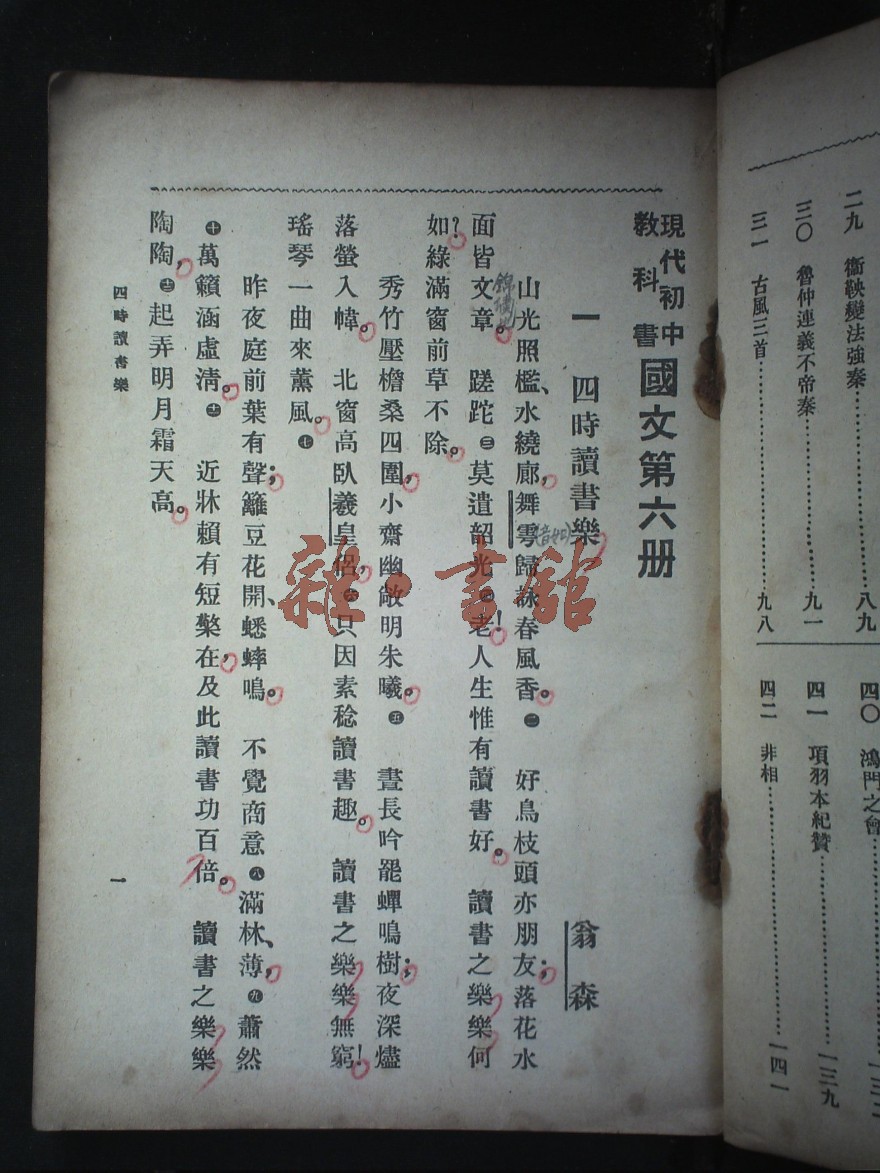 二九　衞鞅變法強秦…………八九
三〇　魯仲連義不帝秦…………九一
三一　古風三首…………九八
四〇　鴻門之會…………
四一　項羽本紀贊…………一三九
四二　非相…………一四一
現代初中
教科書
國文第六册
一　四時讀書樂
(音如)
翁森
山光照檻、水繞廊，舞雩歸詠春風香。㊁　好鳥枝頭亦朋友；落花水
面皆文章。　蹉跎㊂莫遣韶光㊃老！人生惟有讀書好。　讀書之樂樂何
如？綠滿窗前草不除。
秀竹壓檐桑四圍，小齋幽敞明朱曦。㊄　晝長吟罷蟬鳴樹；夜深燼
落螢入幃。　北窗高臥羲皇侶，㊅只因素稔讀書趣。　讀書之樂樂無窮！
瑤琴一曲來薰風。㊆
昨夜庭前葉有聲；籬豆花開、蟋蟀鳴。　不覺商意㊇滿林、薄，㊈蕭然
㊉萬籟涵虛清。　近牀賴有短檠在，及此讀書功百倍。　讀書之樂樂
陶陶，起弄明月霜天高。
四時讀書樂
一
雜·書館